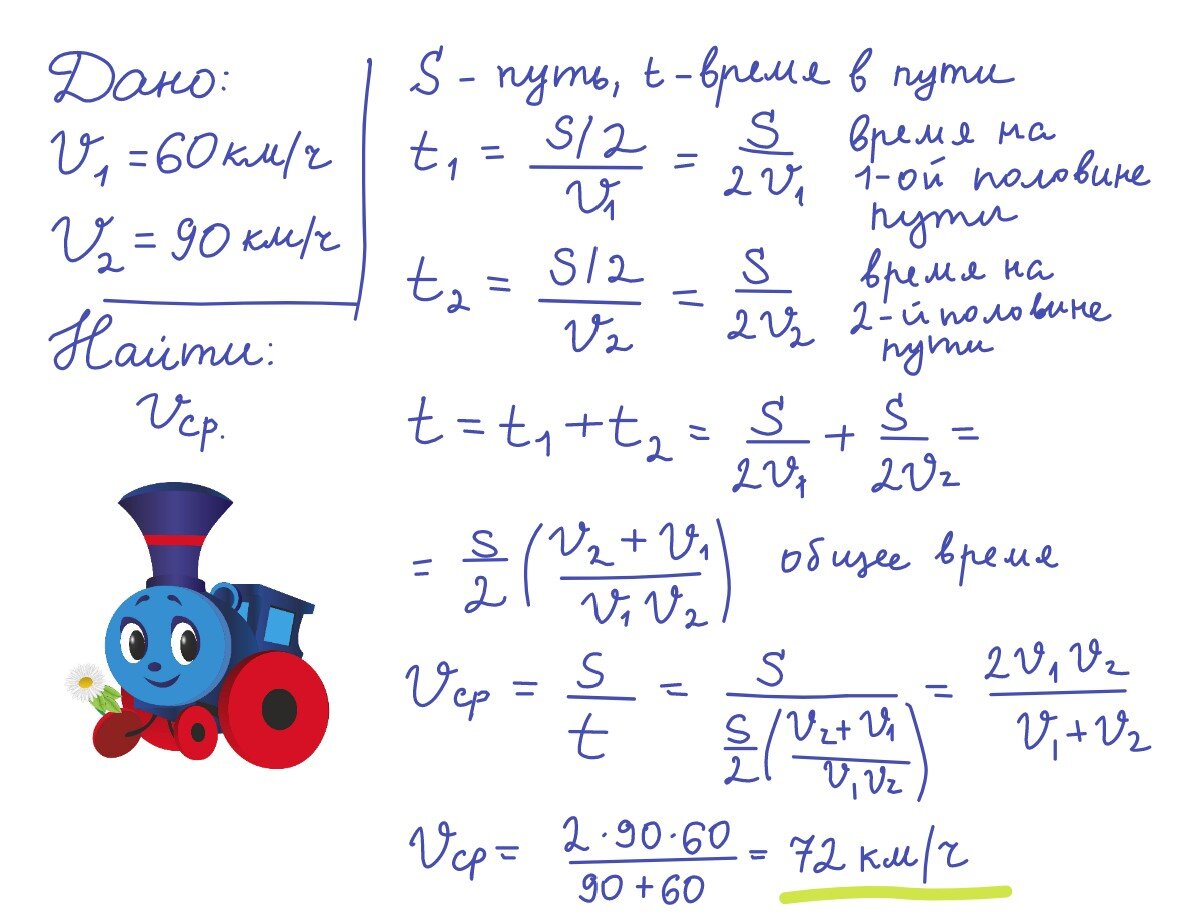 Дано:
V₁ = 60 км/ч
V₂ = 90 км/ч
Найти:
Vср.
S - путь, t - время в пути
t₁ = (S/2)/V₁ = S/(2V₁) время на
1-ой половине
пути
t₂ = (S/2)/V₂ = S/(2V₂) время на
2-й половине
пути
t = t₁ + t₂ = S/(2V₁) + S/(2V₂) =
= S/2 ((V₂ + V₁)/(V₁ V₂)) общее время
Vср = S/t = S/(S/2 ((V₂ + V₁)/(V₁ V₂))) = (2V₁ V₂)/(V₁ + V₂)
Vср = (2 · 90 · 60)/(90 + 60) = 72 км/ч